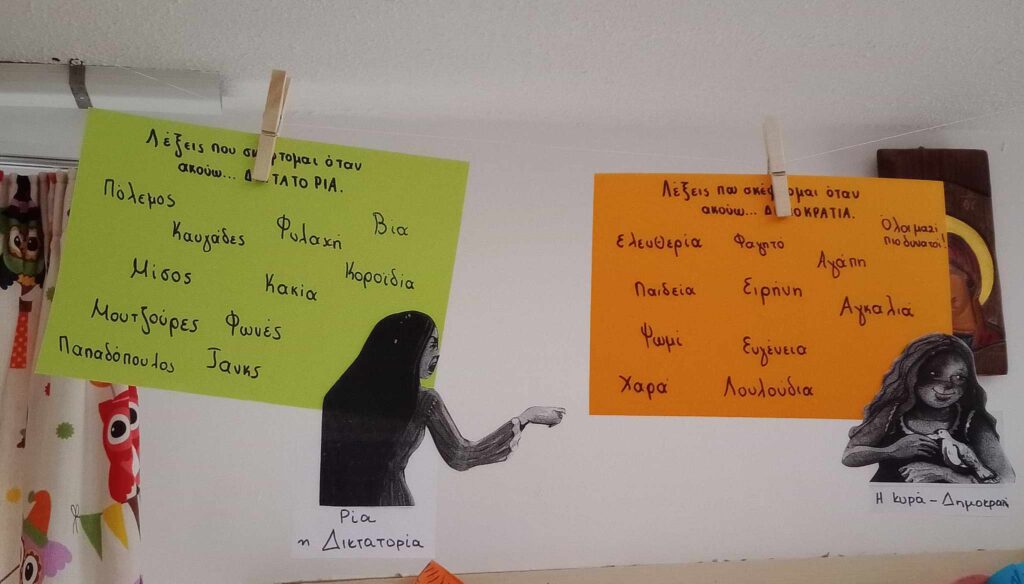 Λέξεις που σκέφτομαι όταν
ακούω... ΔΙΚΤΑΤΟ ΡΙΑ.
Πόλεμος
Καυγάδες Φυλακή Βία
Μίσος Κακία Κοροϊδία
Μουτζούρες Φωνές
Παπαδόπουλος Τανκς
Ρία
η Δικτατορία
Λέξεις που σκέφτομαι όταν
ακούω... ΔΗΜΟΚΡΑΤΙΑ.
Ελευθερία Φαγητό Όλοι μαζί
πιο δυνατοί!
Αγάπη
Παιδεία Ειρήνη Αγκαλιά
Ψωμί Ευγένεια
Χαρά Λουλούδια
Η κυρά - Δημοκρατία